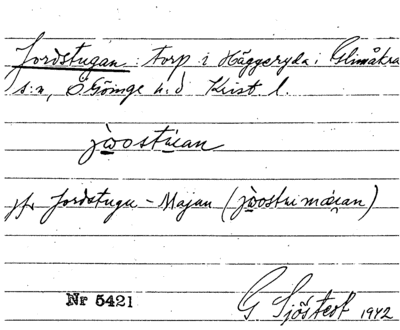 Jordstugan: torp i Häggeryda i Glimåkra
s:n, Ö Göinge h:d Krist l.
jꞷostuean
jfr Jordstugu-Majan (jꞷostu
Nr 5421
G Sjöstedt 1942